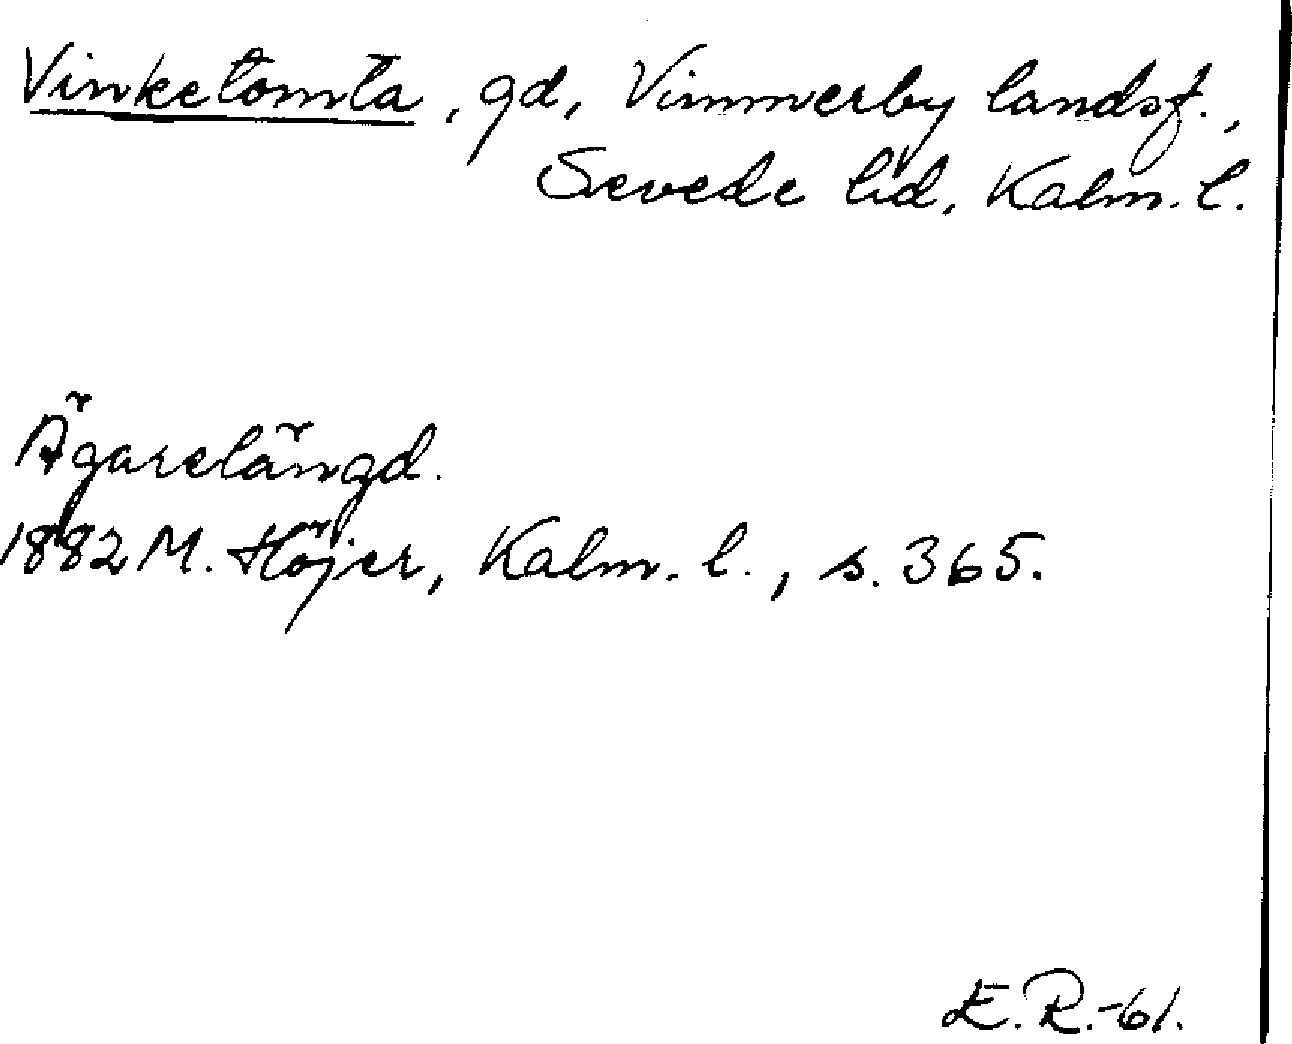 Vinketomta, gd, Vimmerby landsf.,
Sevede hd, Kalm. l.
Ägarelängd.
1882 M. Höjer, Kalm. l., s. 365.
E.R.-61.